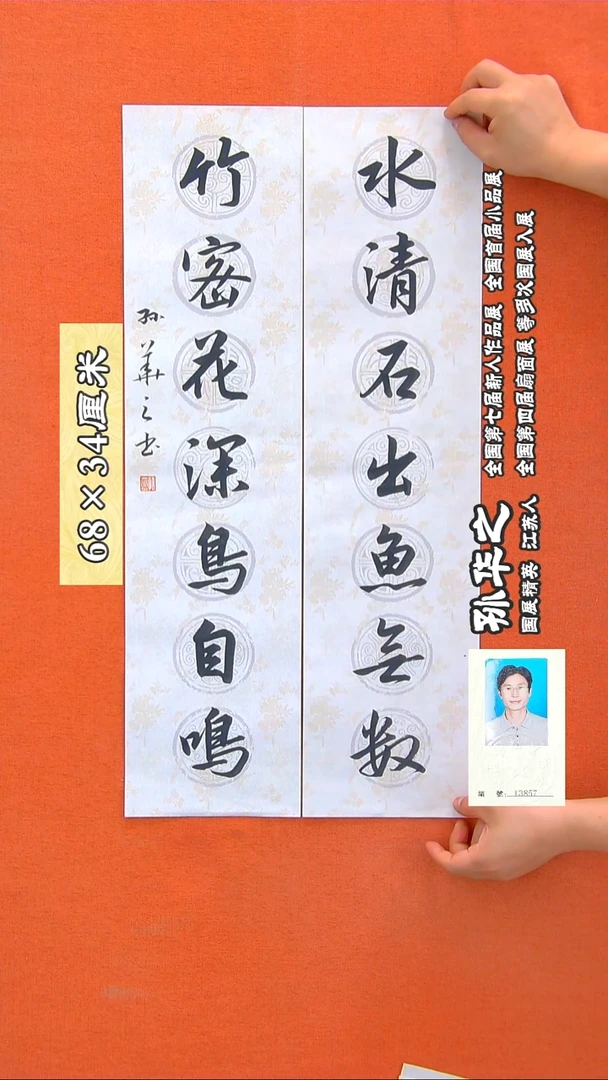 水清石出魚無数
竹密花深鳥自鳴
孙華之书
68×34厘米
孙华之
国展精英 江苏人
全国第七届新人作品展 全国首届小品展
全国第四届扇面展 等多次国展入展
號: 13857